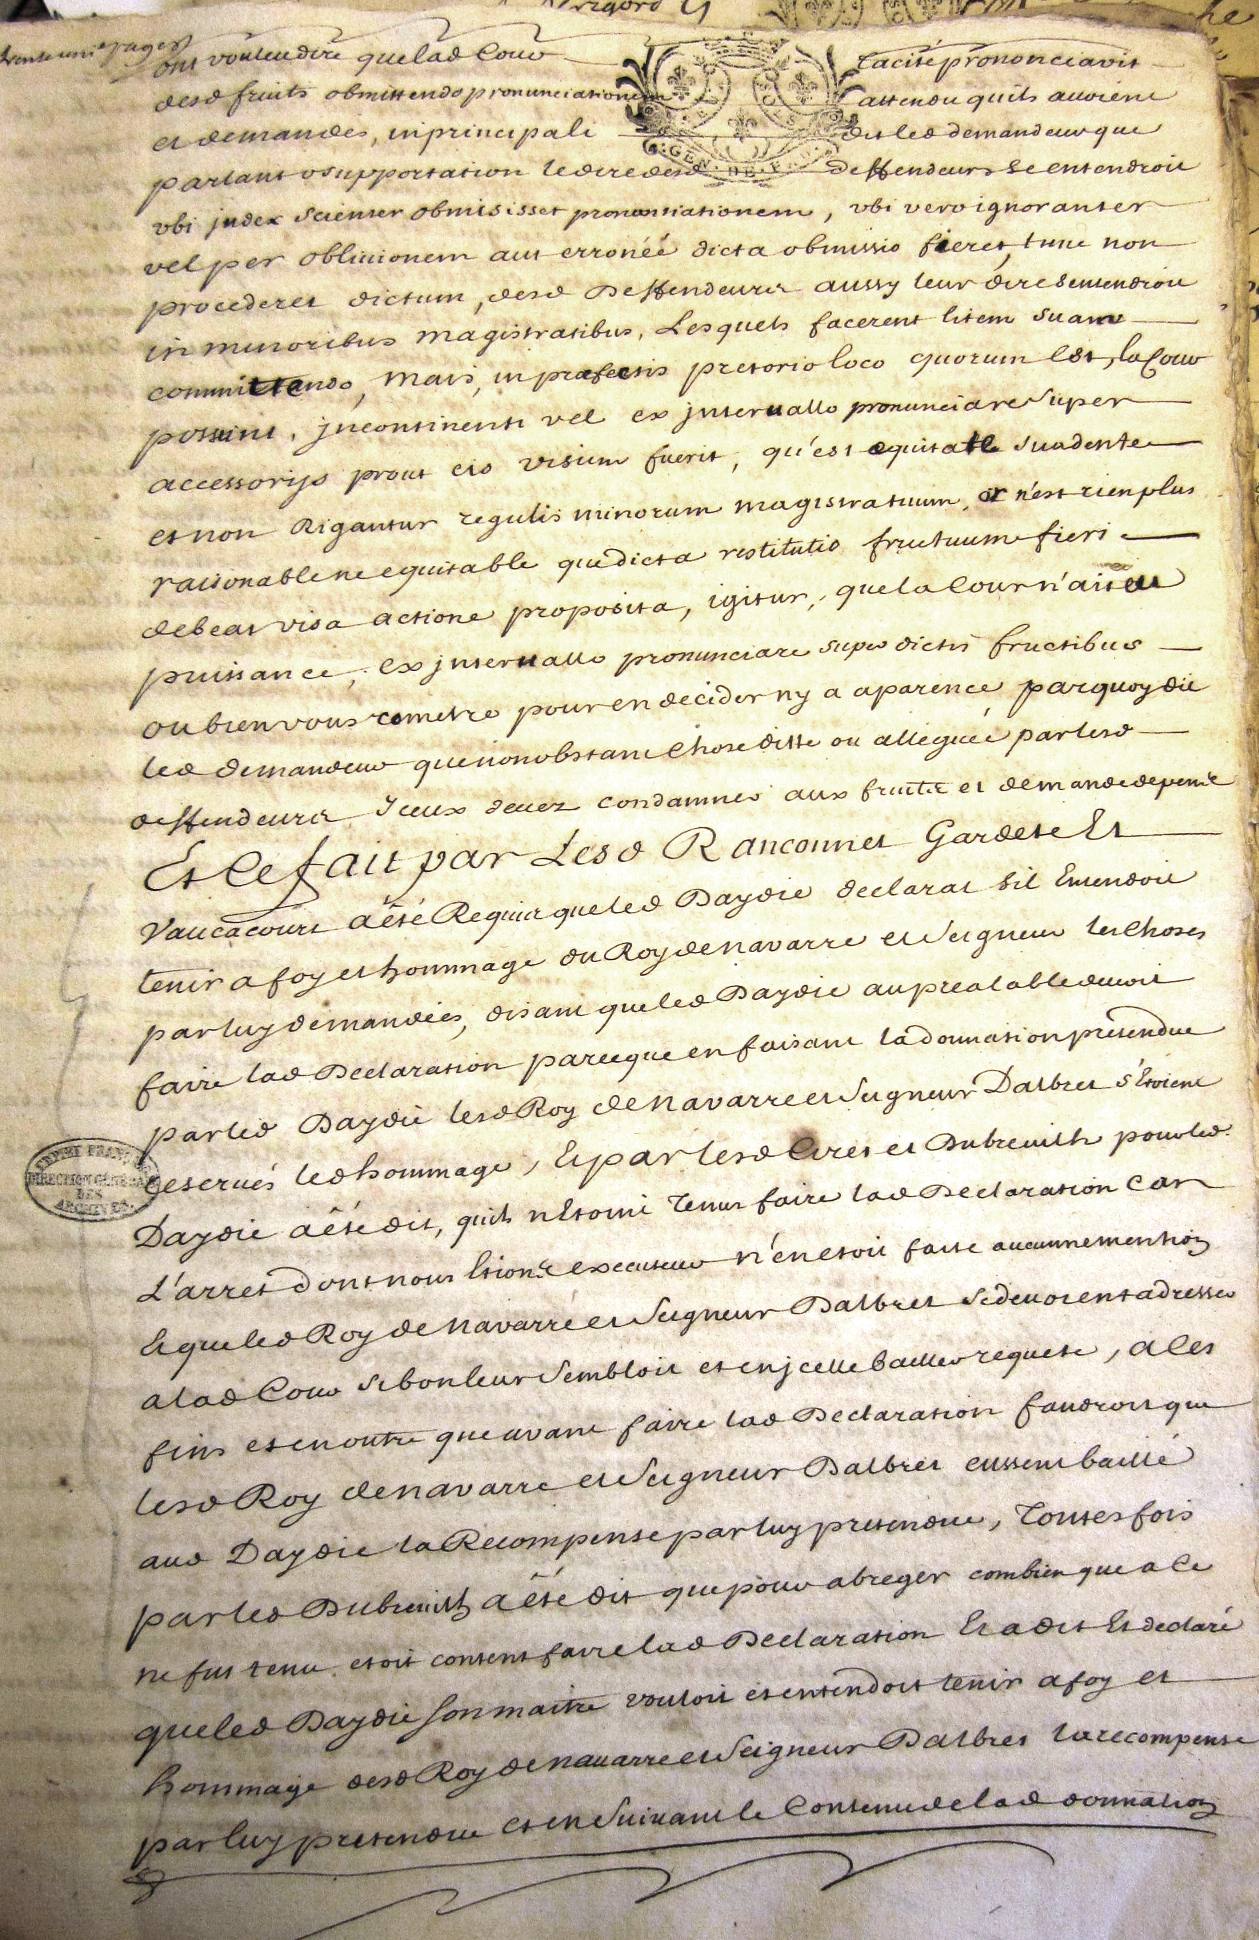 trente uni pages
ont voulleu dire que lad Cour tacité prononciavit
desd fruits obmittendo pronunciationem attendu quils avoient
et demandés, in principali dit led demandeur que
partant o supportation le dire desd deffendeurs se entendroit
GEN. DE. F
ubi judex scienter obmisisset pronuntiationem, ubi vero ignoranter
vel per oblivionem aut erronéé dicta obmissio fieret, tunc non
procederet dictum, desd Deffendeurs aussy leur dire sentendroit
in minoribus magistratibus, Lesquels facerent litem suam
committendo, mais, in prafectis pretorio loco quorum Est, la Cour
possunt, jncontinenti vel ex jntervallo pronunciare super
accessorijs prout eis visum fuerit, qu'est equitate suadente
et non Rigantur regulis minorum magistratuum, et n'est rien plus
raisonable ne equitable que dicta restitutio fructuum fieri
debeat visa actione proposita, igitur, que la Cour n'ait eu
puissance, ex jntervallo pronunciare super dictis fructibus
ou bien vous remetre pour en decider ny a aparence parquoy dit
led demandeur que nonobstant chose ditte ou alleguéé par lesd
deffendeurs Jceux devez condamner aux fruits et demande depens
Et Ce fait par Lesd Ranconnet Gardete Et
Vaucacourt a êté Requis que led Daydie declarat sil Entendoit
tenir a foy et hommage du Roy de navarre et Seigneur les choses
par luy demandéés, disant que led Daydie au prealable devoit
faire lad Declaration parceque en faisant la donnation pretendue
par led Daydie lesd Roy de Navarre et Seigneur Dalbret s'Etoient
reservés led hommage, Et par lesd Cires et Dubreuilh pour led.
EMPIRE FRANÇAIS
DIRECTION GÉNÉRALE
DES
ARCHIVES.
Daydie a êté dit, quils n'Etoint tenus faire lad Declaration Car
L'arret dont nous Etions executeur n'en etoit faite aucunne mention
Et que led Roy de Navarre et Seigneur Dalbret se devoient adresser
a lad Cour si bon leur sembloit et en jcelle bailler requete, a Ces
fins et en outre que avant faire lad Declaration faudroit que
lesd Roy de navarre et Seigneur Dalbret eussent baillé
aud Daydie la Recompense par luy pretendue, Toutesfois
par led Dubreuilh a êté dit que pour abreger combien que a Ce
ne fut tenu etoit content faire lad Declaration Et a dit Et declaré
que led Daydie son maitre vouloit et entendoit tenir a foy et
hommage desd Roy de navarre et Seigneur Dalbret la recompense
par luy pretendue et en Suivant le Contenu de lad donnation